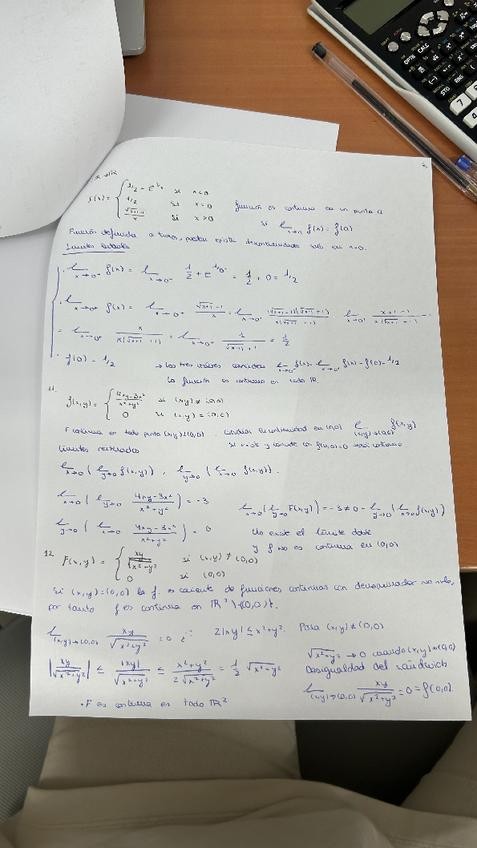 f(x) = { 1/2 + e^{1/x} si x<0
1/2 si x=0
(√(x+1) -1)/x si x>0
función es continua en un punto a
si lim x→a f(x) = f(a)
Función definida a trozos, puede existir discontinuidades solo en x=0.
Límites laterales
· lim x→0⁻ f(x) = lim x→0⁻ 1/2 + e^{1/0⁻} = 1/2 + 0 = 1/2
· lim x→0⁺ f(x) = lim x→0⁺ (√(x+1) -1)/x = lim x→0⁺
= lim x→0⁺ = lim x→0⁺ = 1/2
· f(0) = 1/2 → los tres valores coinciden lim x→0⁻ f(x) = lim x→0⁺ f(x) = f(0) = 1/2
la función es continua en todo ℝ
11.
f(x,y) = { (4xy-3x²)/(x²+y²) si (x,y) ≠ (0,0)
0 si (x,y) = (0,0)
F continua en todo punto (x,y) ≠ (0,0). Estudiar la continuidad en (0,0) lim (x,y)→(0,0) f(x,y)
Si existe y coincide con f(0,0)=0 → continua
Límites reiterados
lim x→0 ( lim y→0 f(x,y) ), lim y→0 ( lim x→0 f(x,y) ).
lim x→0 ( lim y→0 (4xy-3x²)/(x²+y²) ) = -3
lim x→0 ( lim y→0 F(x,y) ) = -3 ≠ 0 = lim y→0 ( lim x→0 f(x,y) )
lim y→0 ( lim x→0 (4xy-3x²)/(x²+y²) ) = 0
No existe el límite doble
y f no es continua en (0,0)
12.
F(x,y) = { xy/√(x²+y²) si (x,y) ≠ (0,0)
0 si (0,0)
Si (x,y) = (0,0) la f. es cociente de funciones continuas con denominador no nulo,
por tanto f es continua en ℝ² \ {(0,0)}.
lim (x,y)→(0,0) xy/√(x²+y²) = 0 ? 2|xy| ≤ x²+y². Para (x,y) ≠ (0,0)
|xy/√(x²+y²)| ≤ |xy|/√(x²+y²) ≤ (x²+y²)/(2√(x²+y²)) = 1/2 √(x²+y²)
√(x²+y²) → 0 cuando (x,y) → (0,0)
Desigualdad del sandwich
lim (x,y)→(0,0) xy/√(x²+y²) = 0 = f(0,0).
· F es continua en todo ℝ²
OPTN
CALC
STO
ENG
7